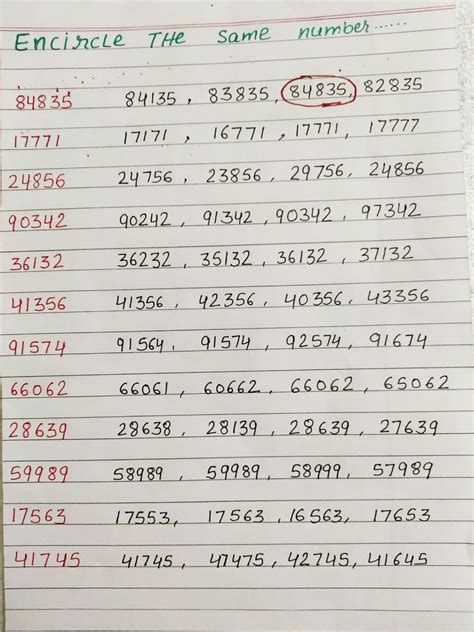 Encircle The same number......
84835 84135, 83835, 84835, 82835
17771 17171, 16771, 17771, 17777
24856 24756, 23856, 29756, 24856
90342 90242, 91342, 90342, 97342
36132 36232, 35132, 36132, 37132
41356 41356, 42356, 40356, 43356
91574 91564, 91574, 92574, 91674
66062 66061, 60662, 66062, 65062
28639 28638, 28139, 28639, 27639
59989 58989, 59989, 58999, 57989
17563 17553, 17563, 16563, 17653
41745 41745, 47475, 42745, 41645